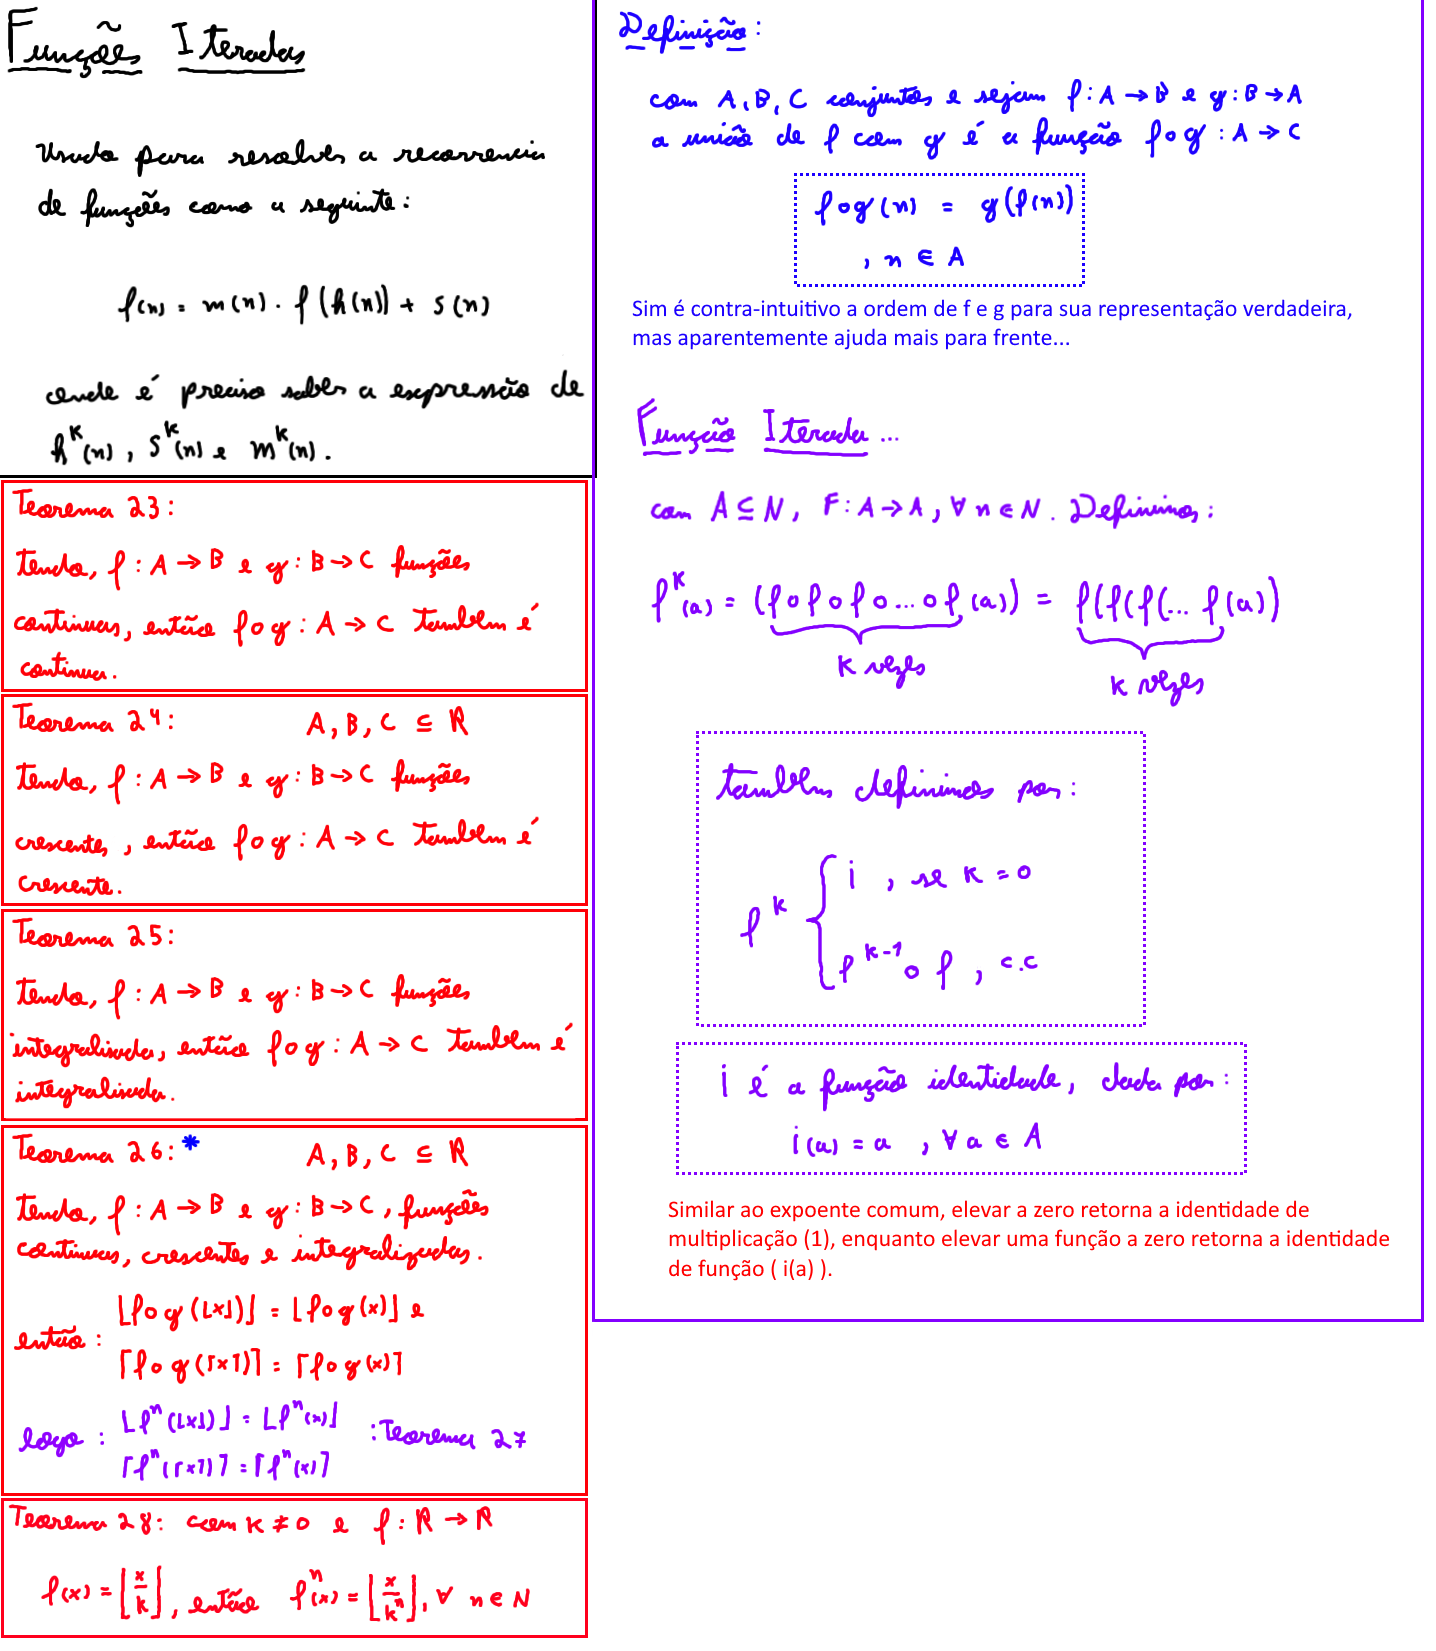 Funções Iteradas
Usado para resolver a recorrencia
de funções como a seguinte:
f(n) = m(n) · f(h(n)) + s(n)
onde é preciso saber a expressão de
h^k(n), s^k(n) e m^k(n).
Teorema 23:
tendo, f: A → B e g: B → C funções
continuas, então f o g: A → C também é
continua.
Teorema 24: A, B, C ⊆ R
tendo, f: A → B e g: B → C funções
crescentes, então f o g: A → C também é
crescente.
Teorema 25:
tendo, f: A → B e g: B → C funções
integralizada, então f o g: A → C também é
integralizada.
Teorema 26: * A, B, C ⊆ R
tendo, f: A → B e g: B → C, funções
continuas, crescentes e integralizadas.
então: ⌊f o g(⌊x⌋)⌋ = ⌊f o g(x)⌋ e
⌈f o g(⌈x⌉)⌉ = ⌈f o g(x)⌉
logo: ⌊f^n(⌊x⌋)⌋ = ⌊f^n(x)⌋ : Teorema 27
⌈f^n(⌈x⌉)⌉ = ⌈f^n(x)⌉
Teorema 28: com k ≠ 0 e f: R → R
f(x) = ⌊x/k⌋, então f^n(x) = ⌊x/k^n⌋, ∀ n ∈ N
Definição:
com A, B, C conjuntos e sejam f: A → B e g: B → A
a união de f com g é a função f o g: A → C
f o g(n) = g(f(n))
, n ∈ A
Sim é contra-intuitivo a ordem de f e g para sua representação verdadeira,
mas aparentemente ajuda mais para frente...
Função Iterada...
com A ⊆ N, F: A → A, ∀ n ∈ N. Definimos:
f^k(a) = (f o f o f o ... o f(a)) = f(f(f(... f(a))
k vezes k vezes
também definimos por:
f^k { i, se k = 0
f^k-1 o f, c.c
i é a função identidade, dada por:
i(a) = a, ∀ a ∈ A
Similar ao expoente comum, elevar a zero retorna a identidade de
multiplicação (1), enquanto elevar uma função a zero retorna a identidade
de função ( i(a) ).